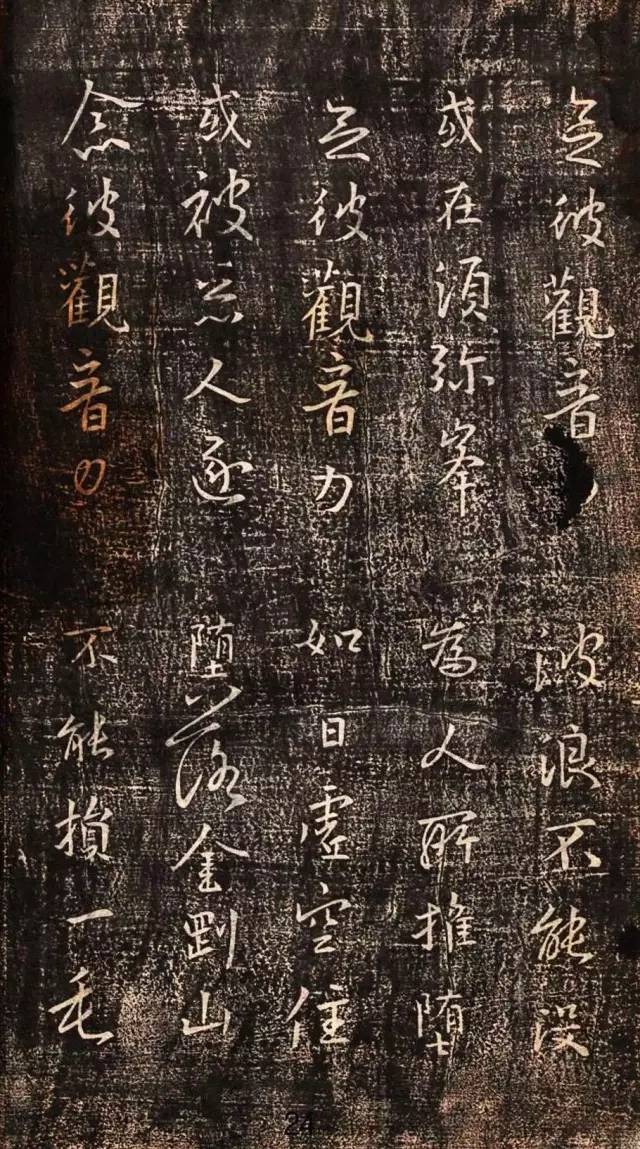 念彼觀音 波浪不能没
或在須弥峯 為人所推堕
念彼觀音力 如日虛空住
或被惡人逐 堕落金剛山
念彼觀音力 不能損一毛
24